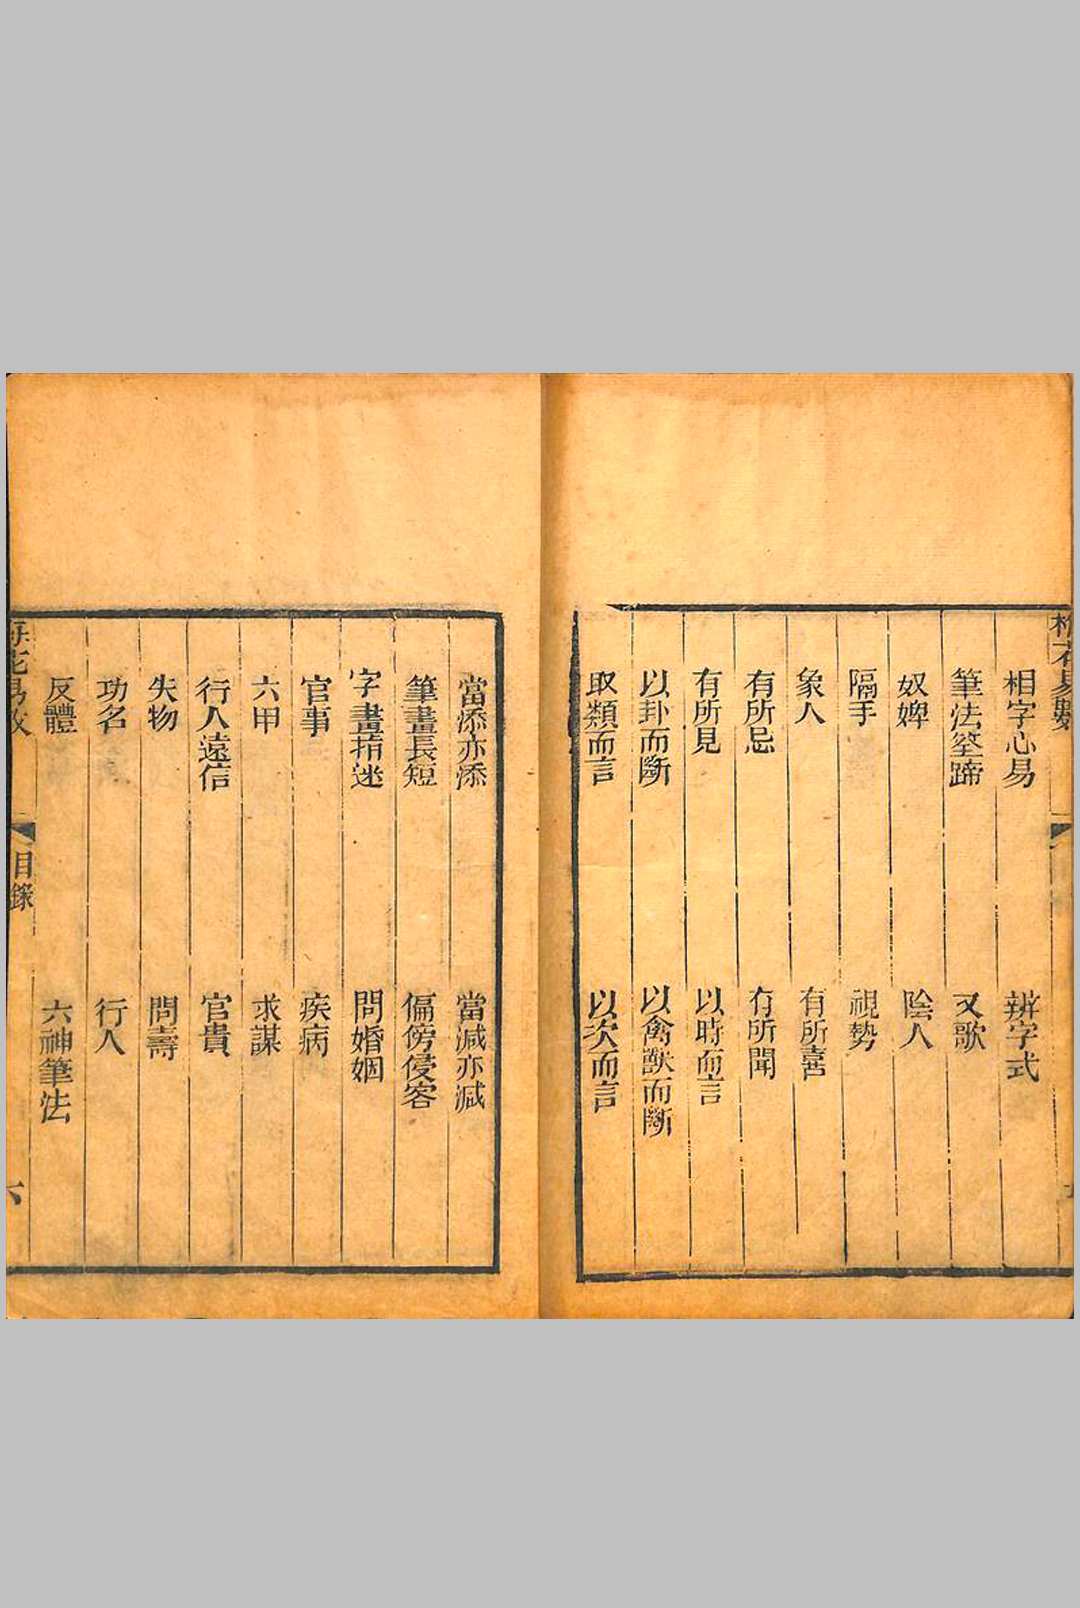 梅花易數
相字心易 辨字式
筆法筌蹄 又歌
奴婢 陰人
隔手 視勢
象人 有所喜
有所忌 有所聞
有所見 以時而言
以卦而斷 以禽獸而斷
取類而言 以次而言
當添亦添 當減亦減
筆畫長短 偏傍侵客
字畫指迷 問婚姻
官事 疾病
六甲 求謀
行人遠信 官貴
失物 問壽
功名 行人
反體 六神筆法
梅花易數 目錄 六